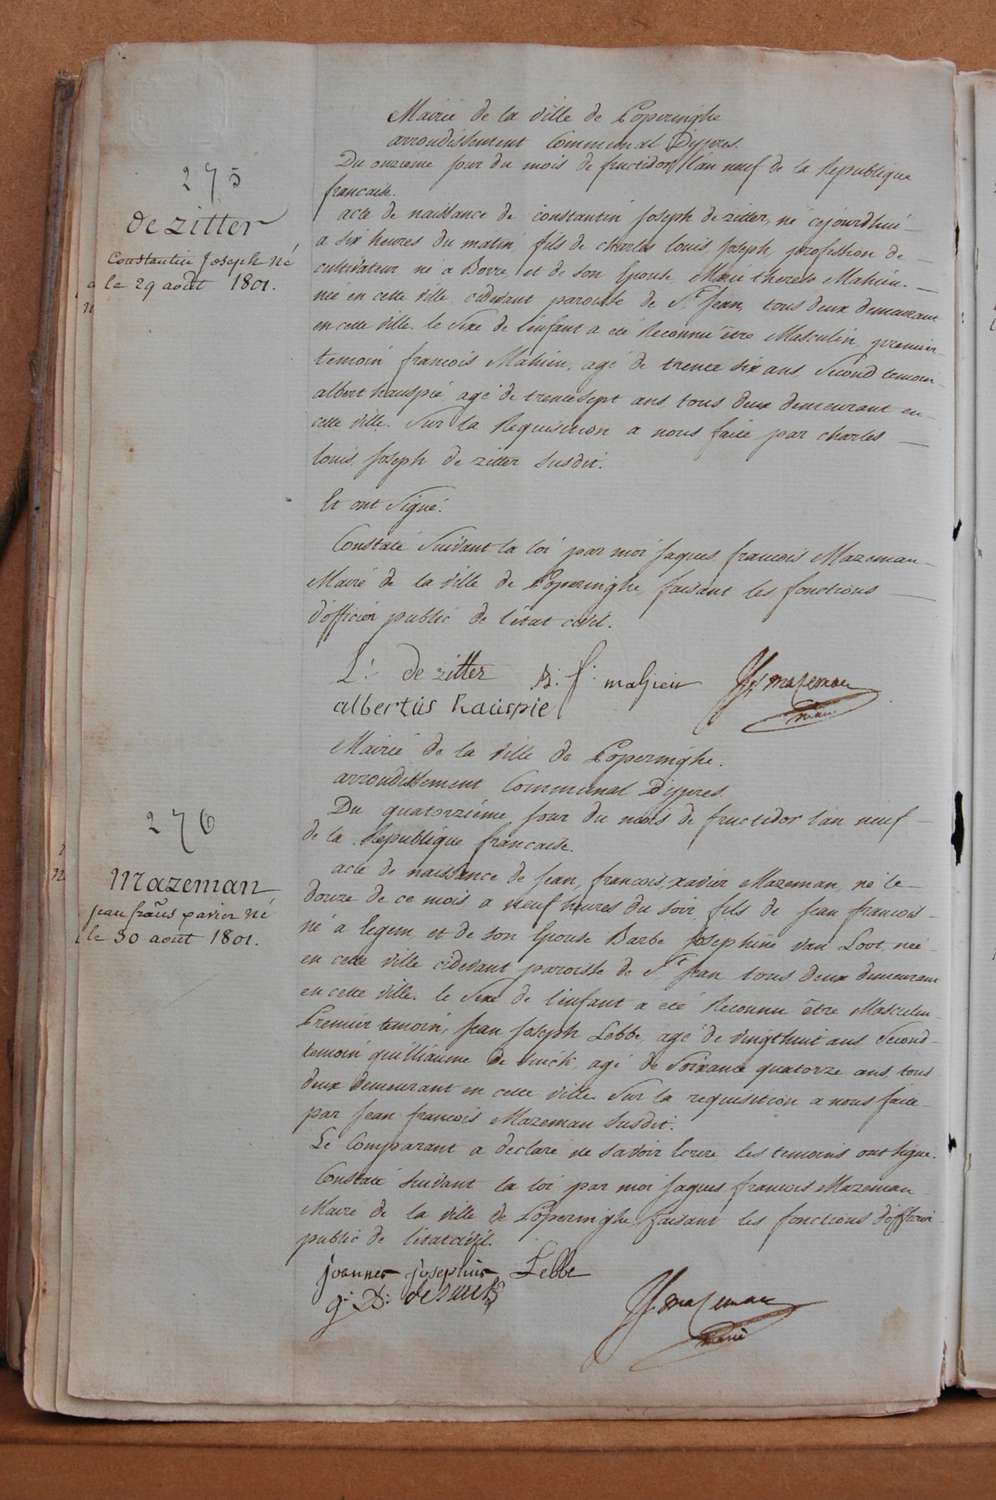 Mairie de la ville de Poperinghe
arrondissement Communal D'ypres.
Du onzieme jour du mois de fructidor l'an neuf de la Republique
francaise.
275
de zitter
Constantin Joseph né
le 29 août 1801.
acte de naissance de constantin Joseph de zitter, né cejourdhui
a six heures du matin, fils de charles louis Joseph, profession de
cultivateur né a Borre, et de son Epouse Marie therese Mahieu.
née en cette ville cidevant paroisse de St Jean, tous deux demeurant
en cette ville. le Sexe de l'infant a été Reconnu être Masculin, premier
temoin francois Mahieu, agé de trente six ans Second temoin
albert hauspié, agé de trentesept ans tous deux demeurant en
cette ville. Sur la Requisition a nous faite par charles
louis Joseph de zitter susdit.
Et ont Signé.
Constaté Suivant la loi par moi Jaques francois Mazeman
Maire de la ville de Poperinghe, faisant les fonctions
d'officier public de l'état civil.
L: de zitter B: f: mahieu JJ mazeman
albertus hauspie maire
Mairie de la ville de Poperinghe.
arrondissement Communal D'ypres
Du quatorziéme jour du mois de fructidor l'an neuf
de la Republique francaise.
276
Mazeman
jean fraus xavier né
le 30 août 1801.
acte de naissance de Jean, francois, xavier Mazeman, né le
douze de ce mois a neuf heures du soir, fils de Jean francois
né à legem et de son Epouse Barbe Josephine van Loot, née
en cette ville cidevant paroisse de St Jean tous deux demeurant
en cette ville. le Sexe de l'infant a été Reconnu être Masculin
Premier temoin, Jean Joseph Lebbe, agé de vingthuit ans Second
temoin guilliaume de vuick, agé de Soixante quatorze ans, tous
deux demeurant en cette ville. Sur la requisition a nous faite
par Jean francois Mazeman susdit.
Le Comparant a declaré ne savoir Ecrire les temoins ont signe.
Constaté Suivant la loi par moi Jaques francois Mazeman
Maire de la ville de Poperinghe, faisant les fonctions d'officier
public de l'etat civil.
joannes josephus Lebbe
g: D: JJ mazeman
maire